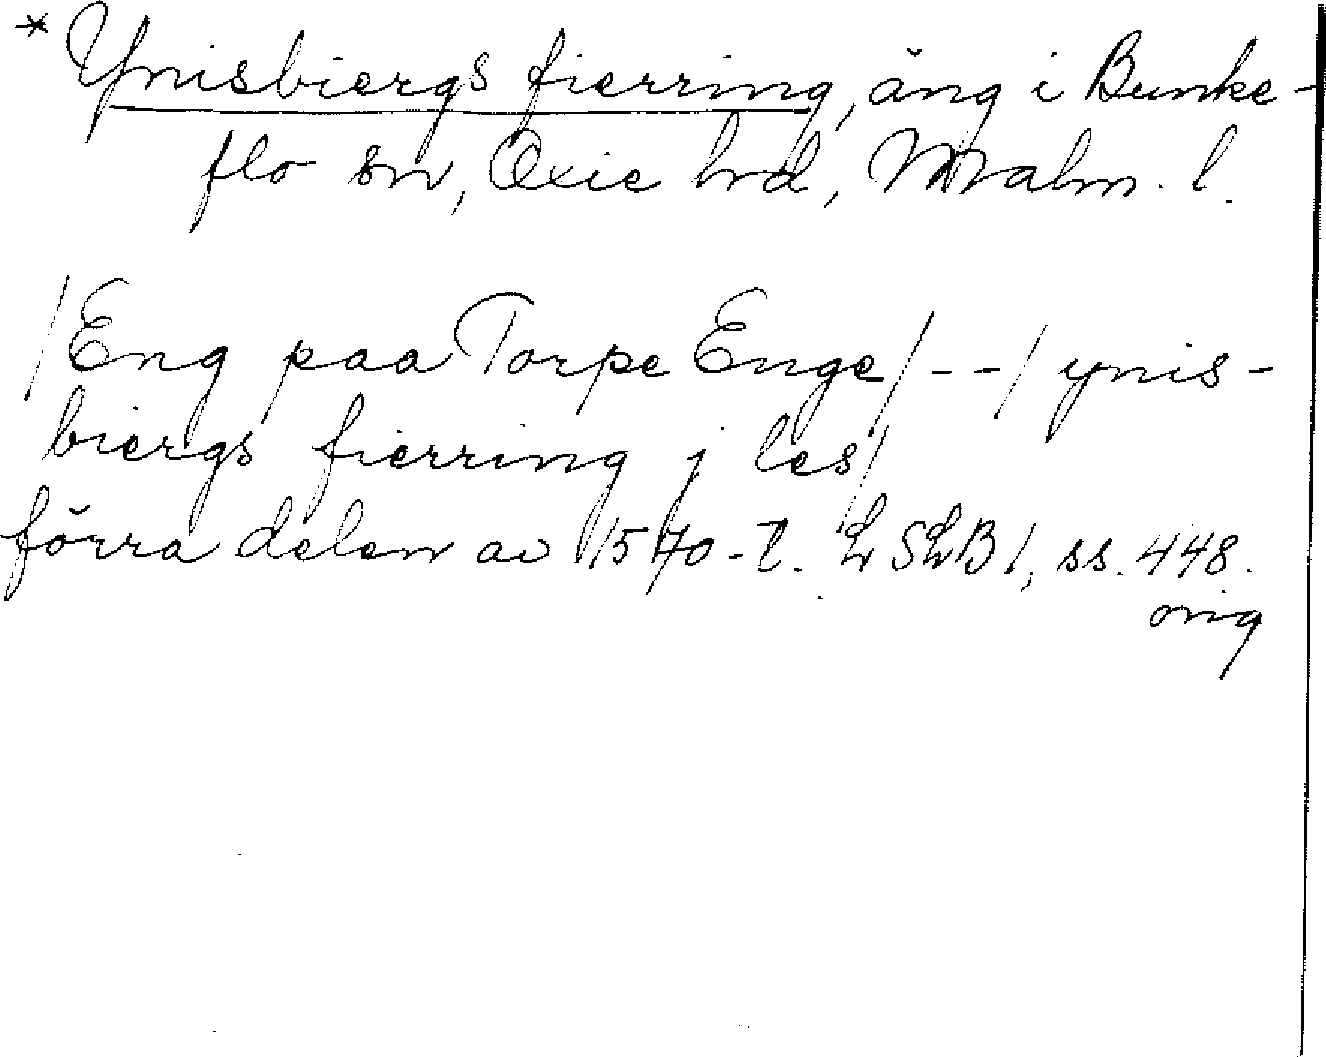 * Ynisbiergs fierring, äng i Bunke-
flo sn, Oxie hrd, Malm. l.
/Eng paa Torpe Enge/--/ ynis-
biergs fierring j les/
förra delen av 1570-t. LSLB 1, ss. 448.
orig